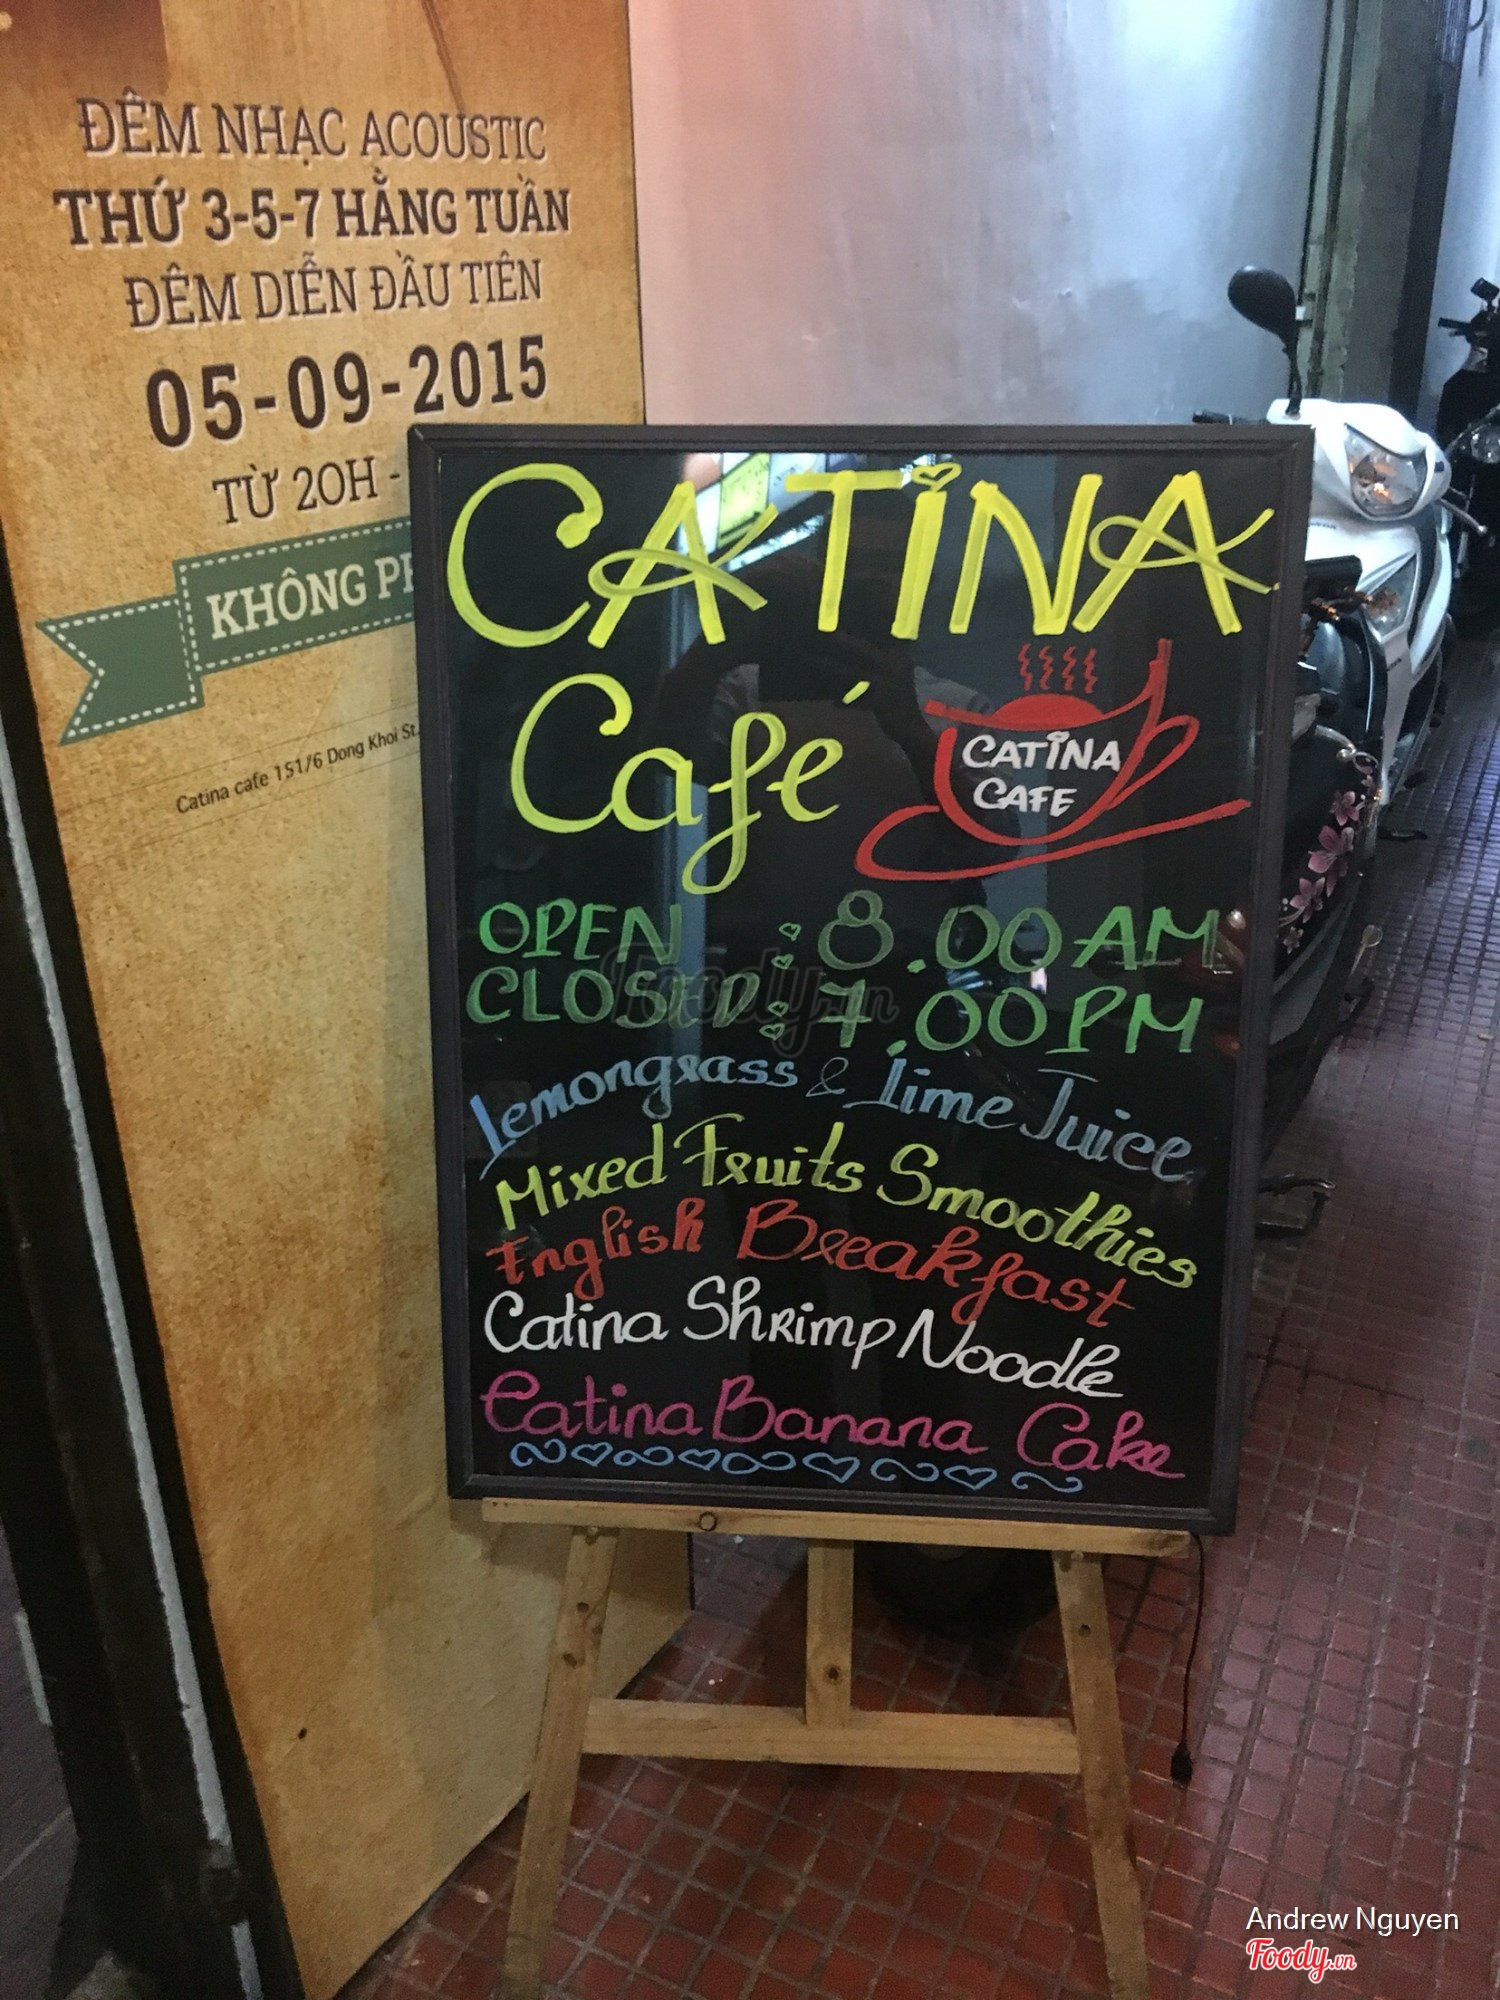 ĐÊM NHẠC ACOUSTIC
THỨ 3-5-7 HẰNG TUẦN
ĐÊM DIỄN ĐẦU TIÊN
05-09-2015
TỪ 20H -
KHÔNG
Catina cafe 151/6 Dong Khoi St.
CATINA
Café
CATINA
CAFE
OPEN : 8.00 AM
CLOSED : 7.00 PM
Lemongrass & Lime Juice
Mixed Fruits Smoothies
English Breakfast
Catina Shrimp Noodle
Catina Banana Cake
Foody.vn
Andrew Nguyen
Foody.vn